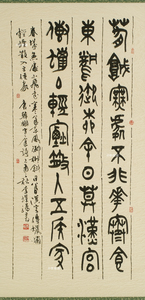 春城無處不飛花寒食
東風御柳斜日暮漢宮
傳蠟燭輕煙散入五侯家
春城無處不飛花寒食東風御柳斜日暮漢宮傳蠟燭
輕煙散入五侯家